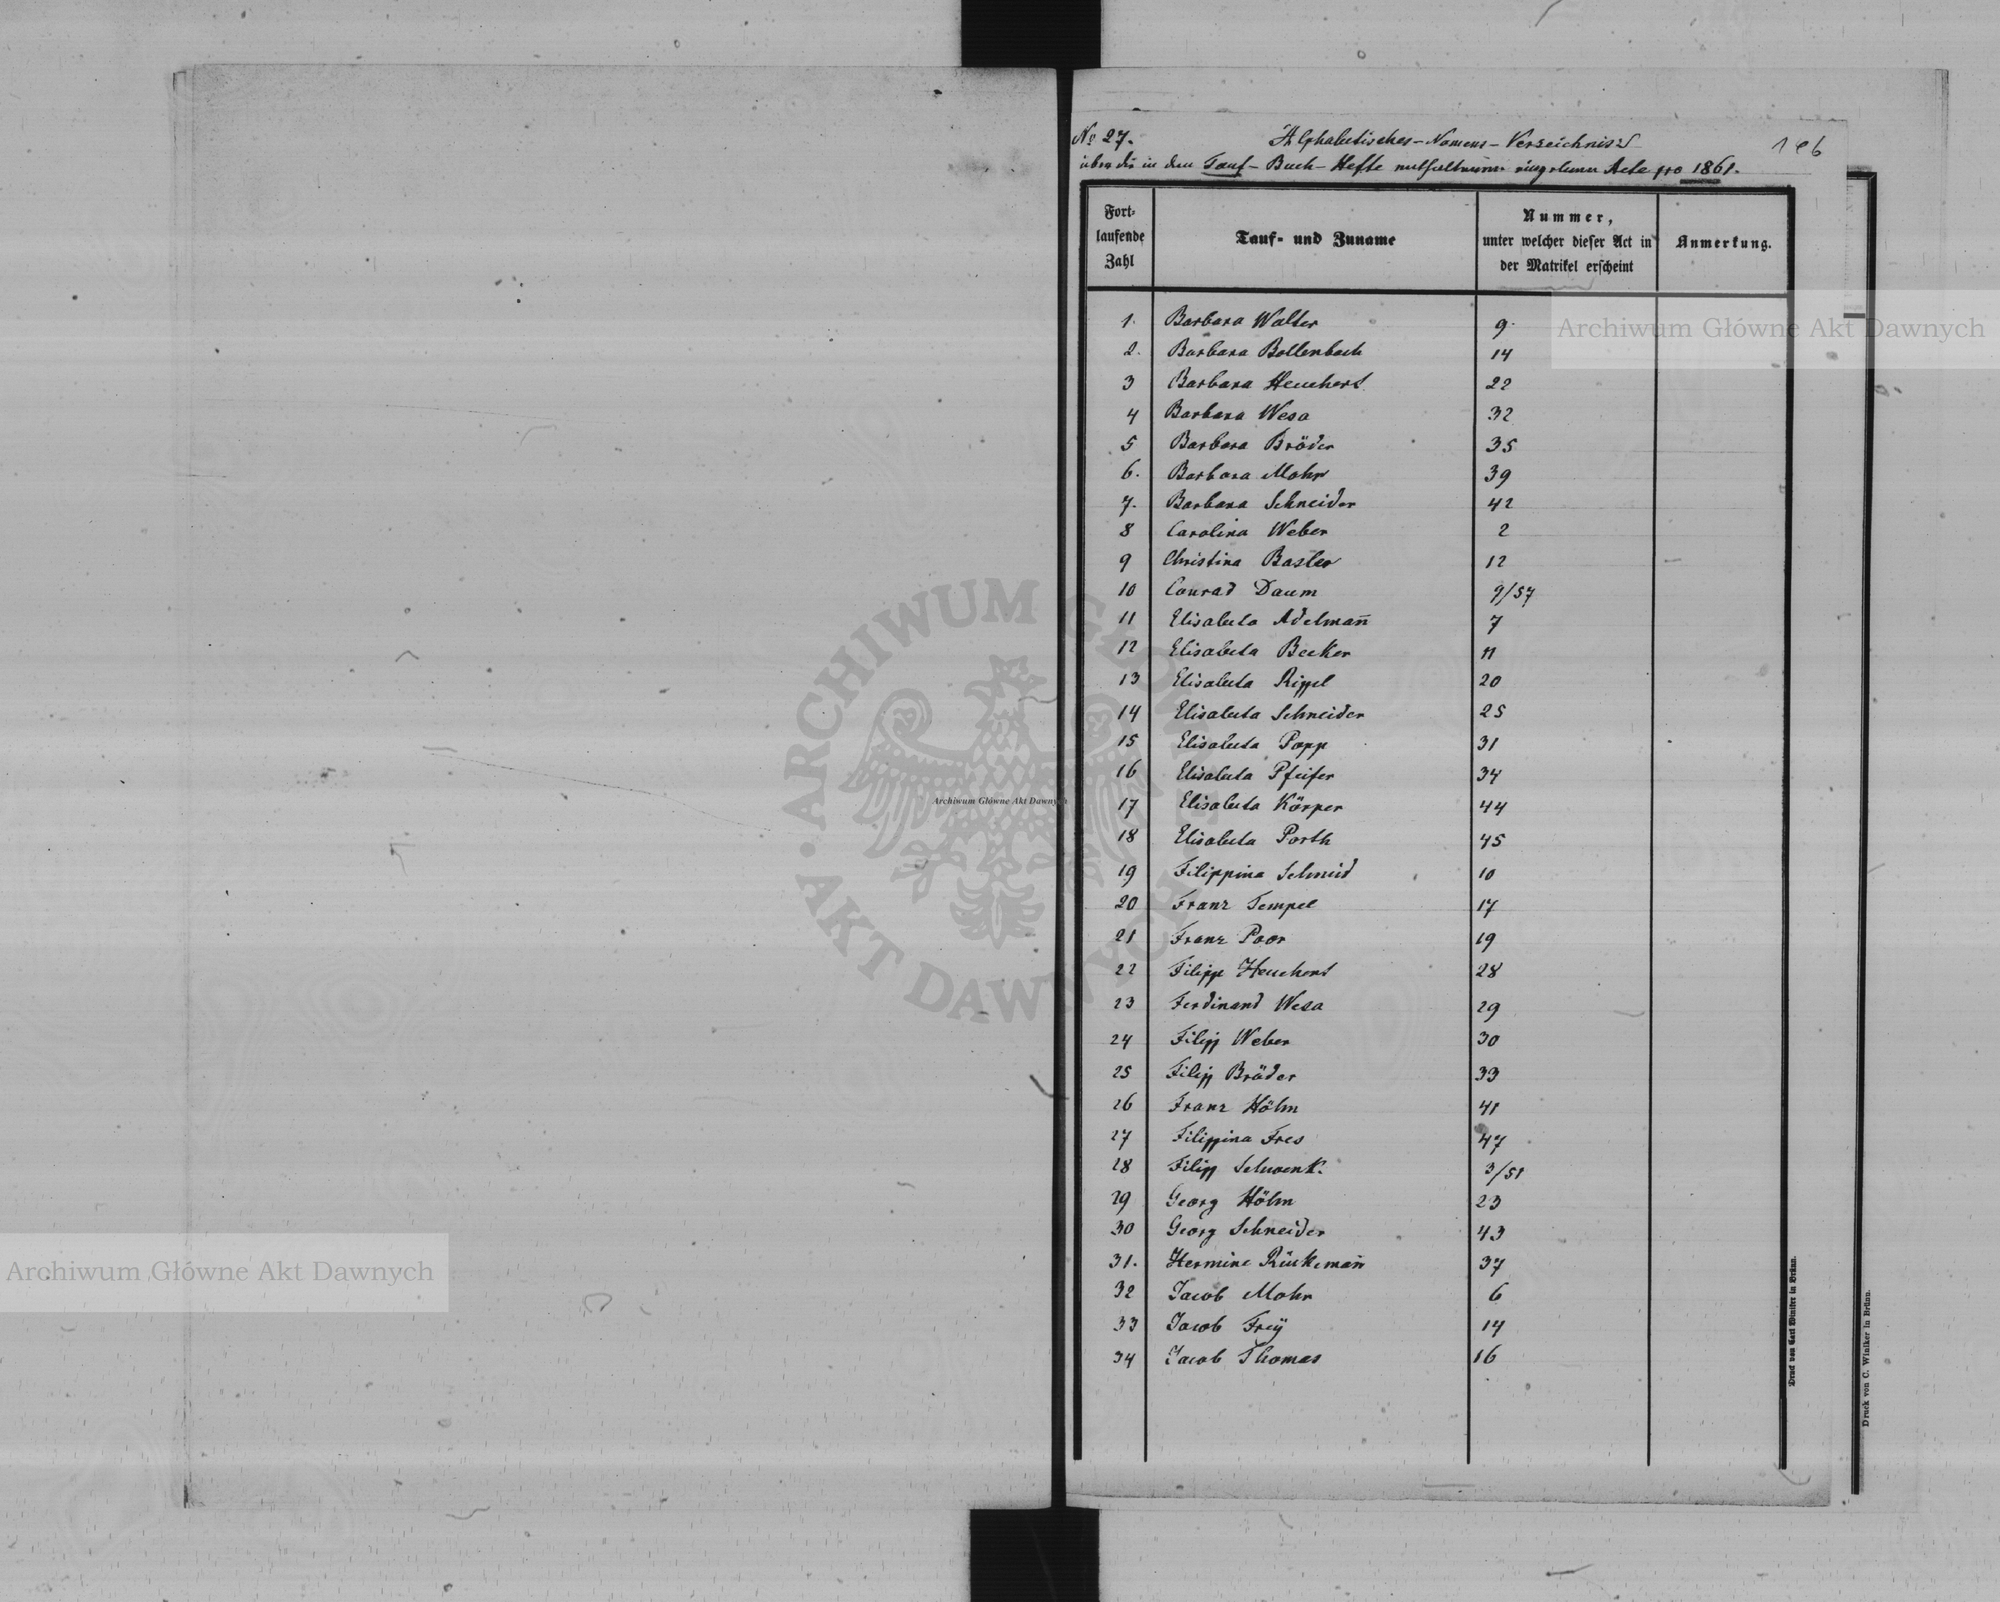 No 27.
Alphabetisches-Namens-Verzeichniss
166
über die in dem Tauf-Buch-Hefte Acte pro 1861.
Fort-
laufende
Zahl
Tauf- und Zuname
Nummer,
unter welcher dieser Act in
der Matrikel erscheint
Anmerkung.
1. Barbara Walter 9.
2. Barbara Bollenbach 14
3 Barbara Heuchert 22
4 Barbara Wesa 32
5 Barbara Bröder 35
6. Barbara Mohr 39
7. Barbara Schneider 42
8 Carolina Weber 2
9 Christina Basler 12
10 Conrad Daum 9/57
11 Elisabeta Adelman̅n̅ 7
12 Elisabeta Becker 11
13 Elisabeta Rippel 20
14 Elisabeta Schneider 25
15 Elisabeta Popp 31
16 Elisabeta Pfeifer 34
17 Elisabeta Körper 44
18 Elisabeta Porth 45
19 Filippina Schmid 10
20 Franz Tempel 17
21 Franz Poor 19
22 Filipp Heuchert 28
23 Ferdinand Wesa 29
24 Filipp Weber 30
25 Filipp Bröder 33
26 Franz Höhn 41
27 Filippina Fres 47
28 Filipp Schwenk. 3/51
29 Georg Höhn 23
30 Georg Schneider 43
31. Hermine Rückeman̅n̅ 37
32 Jacob Mohr 6
33 Jacob Freÿ 14
34 Jacob Thomas 16
Druck von Carl Winiker in Brünn.
Druck von C. Winiker in Brünn.
Archiwum Główne Akt Dawnych
Archiwum Główne Akt Dawnych
Archiwum Główne Akt Dawnych
ARCHIWUM GŁÓWNE • AKT DAWNYCH •